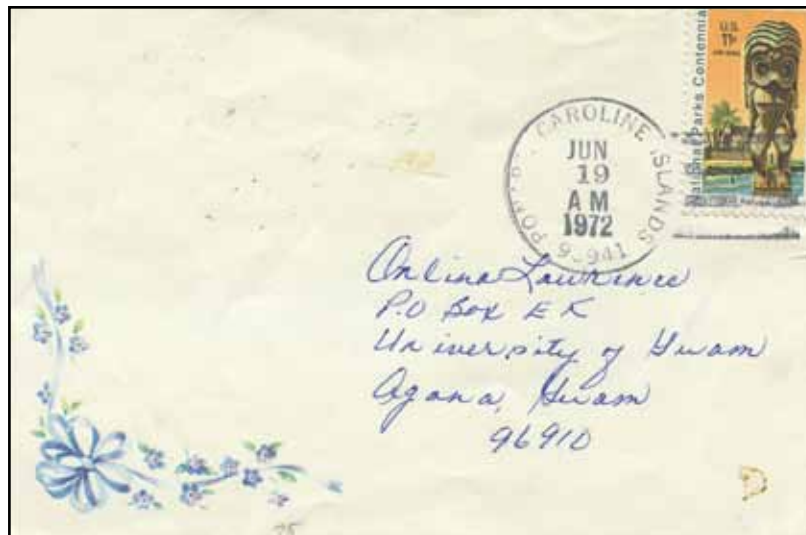 National Parks Centennial
U.S.
11¢
CAROLINE ISLANDS
JUN
19
AM
1972
Onlina Lawrence
P.O Box EK
University of Guam
Agana, Guam
96910